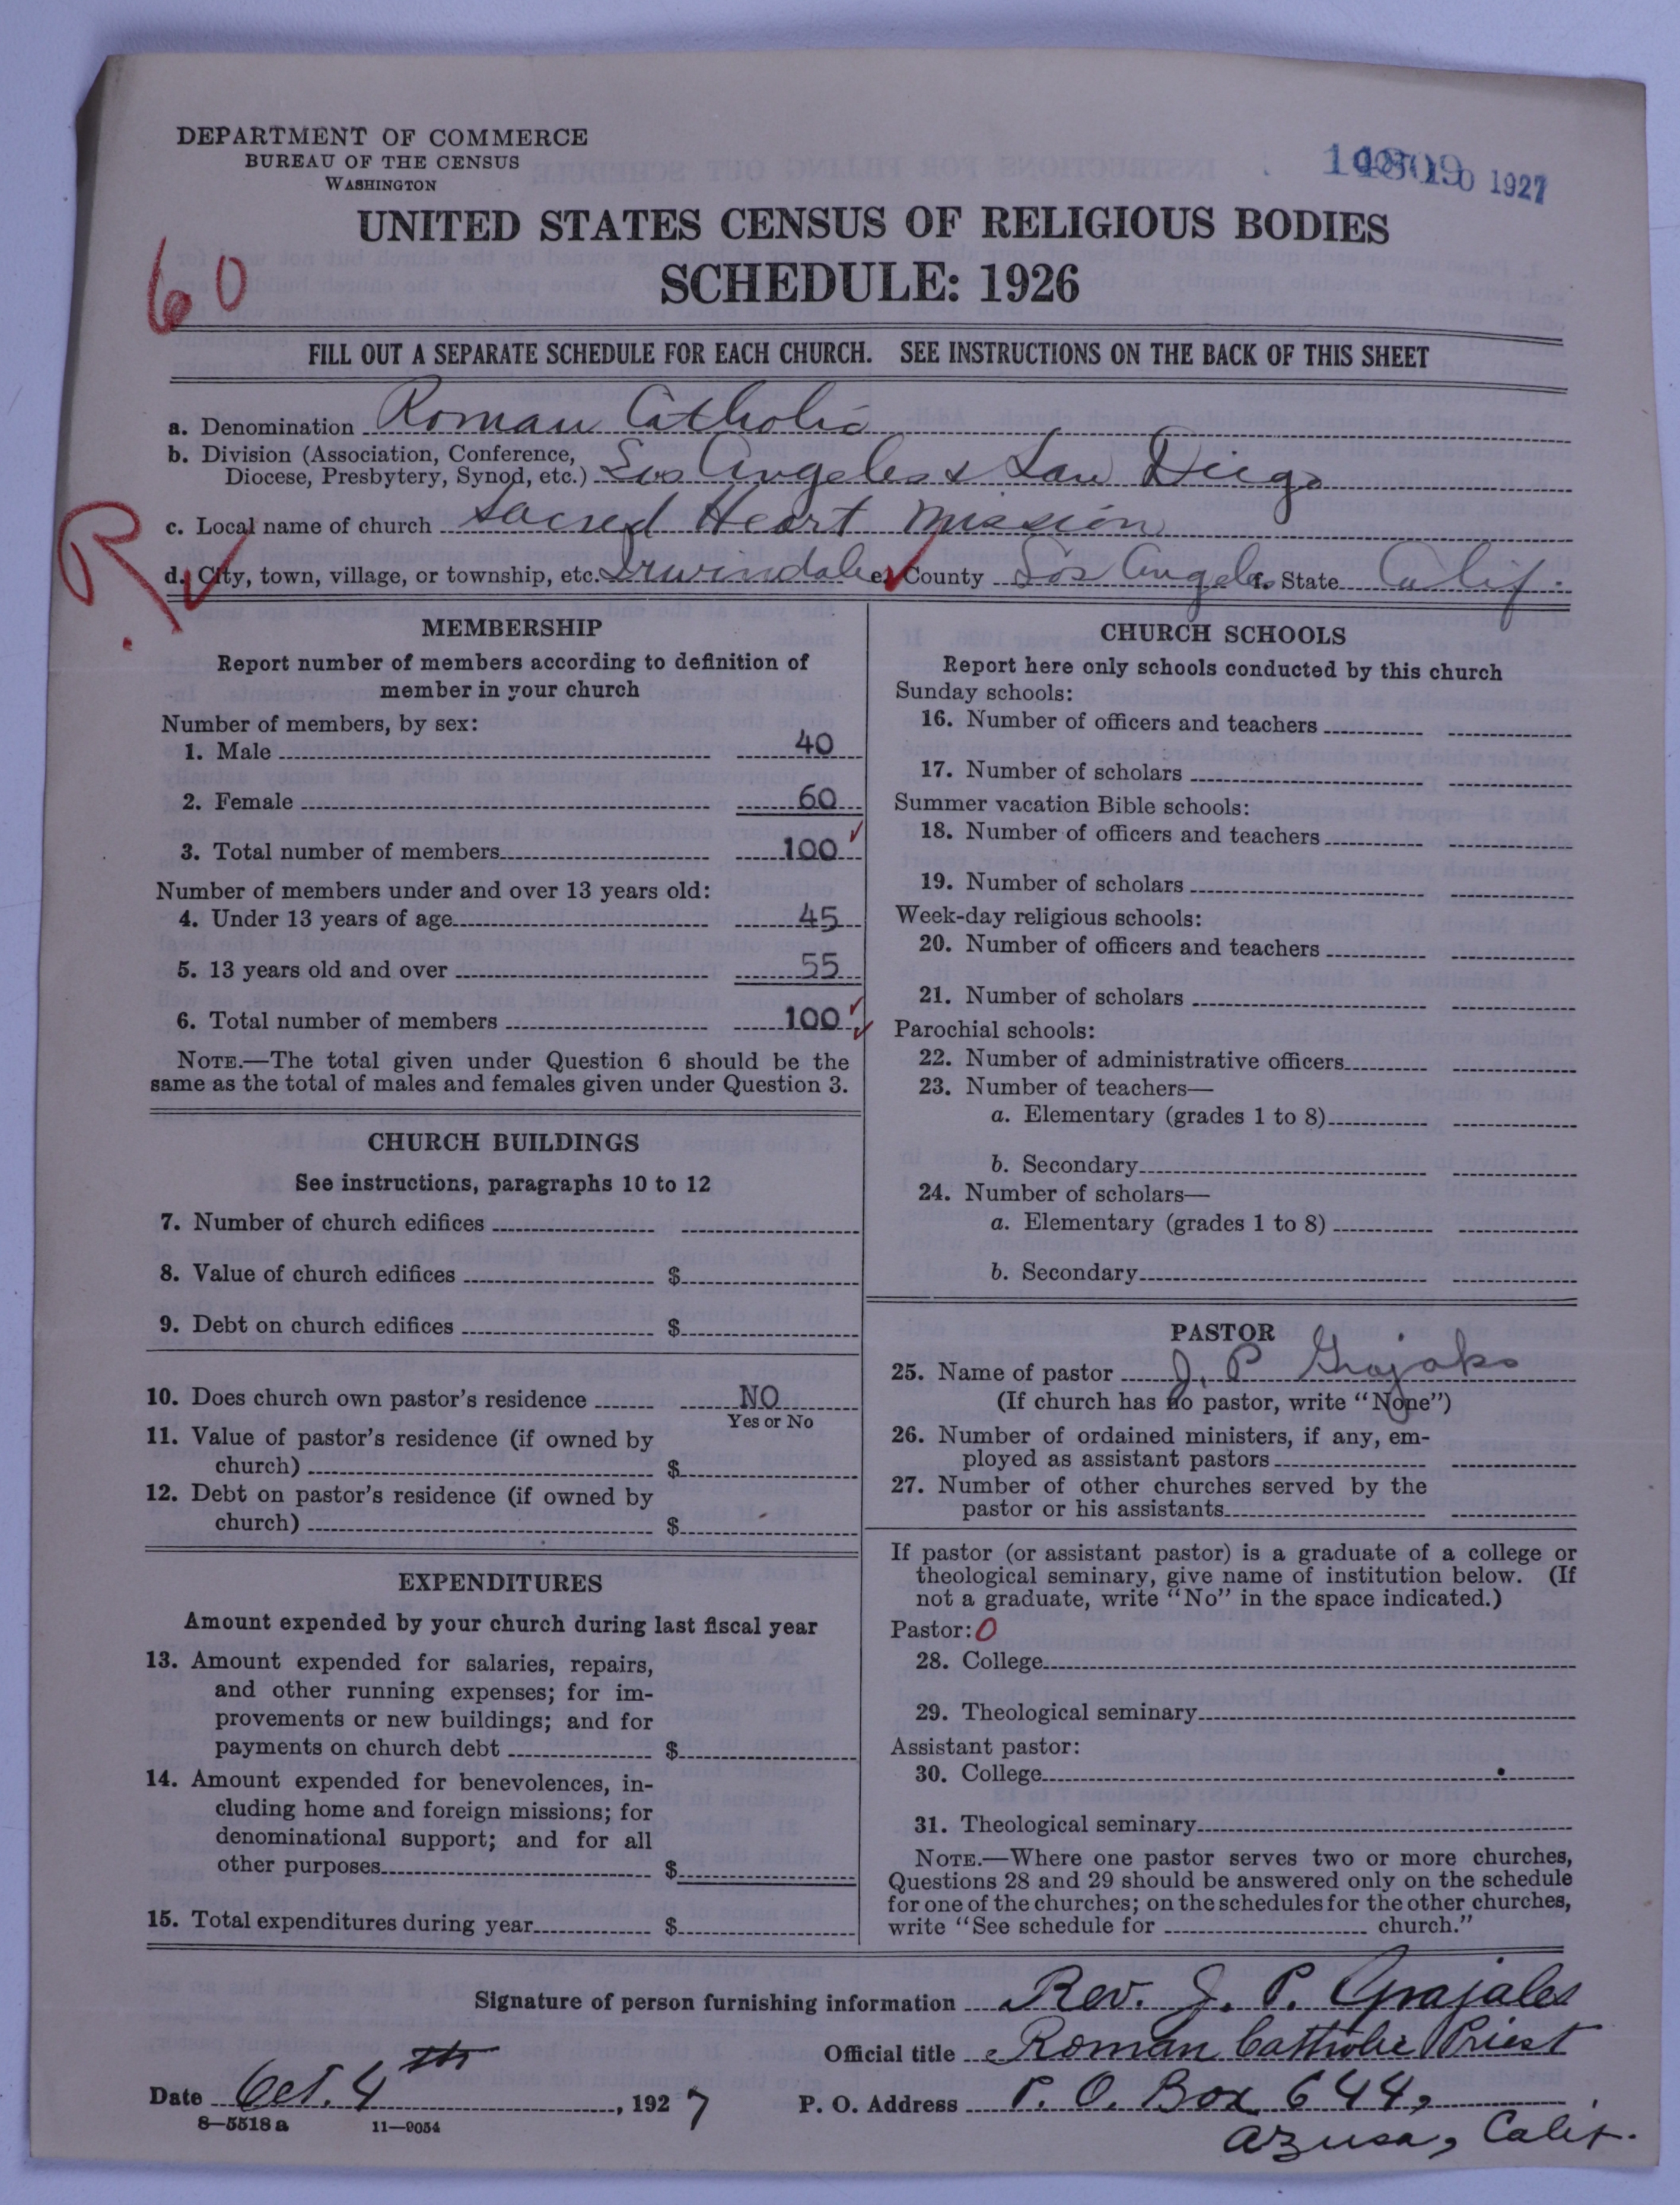 DEPARTMENT OF COMMERCE
BUREAU OF THE CENSUS
WASHINGTON
1927
UNITED STATES CENSUS OF RELIGIOUS BODIES
SCHEDULE: 1926
60
FILL OUT A SEPARATE SCHEDULE FOR EACH CHURCH. SEE INSTRUCTIONS ON THE BACK OF THIS SHEET
a. Denomination Roman Catholic
b. Division (Association, Conference,
Diocese, Presbytery, Synod, etc.) Los Angeles & San Diego
c. Local name of church Sacred Heart Mission
R
d. City, town, village, or township, etc. Irwindale e. County Los Angeles f. State Calif.
MEMBERSHIP
Report number of members according to definition of
member in your church
Number of members, by sex:
1. Male 40
2. Female 60
3. Total number of members 100
Number of members under and over 13 years old:
4. Under 13 years of age 45
5. 13 years old and over 55
6. Total number of members 100
NOTE.—The total given under Question 6 should be the
same as the total of males and females given under Question 3.
CHURCH BUILDINGS
See instructions, paragraphs 10 to 12
7. Number of church edifices
8. Value of church edifices $
9. Debt on church edifices $
10. Does church own pastor's residence NO
Yes or No
11. Value of pastor's residence (if owned by
church) $
12. Debt on pastor's residence (if owned by
church) $
EXPENDITURES
Amount expended by your church during last fiscal year
13. Amount expended for salaries, repairs,
and other running expenses; for im-
provements or new buildings; and for
payments on church debt $
14. Amount expended for benevolences, in-
cluding home and foreign missions; for
denominational support; and for all
other purposes $
15. Total expenditures during year $
CHURCH SCHOOLS
Report here only schools conducted by this church
Sunday schools:
16. Number of officers and teachers
17. Number of scholars
Summer vacation Bible schools:
18. Number of officers and teachers
19. Number of scholars
Week-day religious schools:
20. Number of officers and teachers
21. Number of scholars
Parochial schools:
22. Number of administrative officers
23. Number of teachers—
a. Elementary (grades 1 to 8)
b. Secondary
24. Number of scholars—
a. Elementary (grades 1 to 8)
b. Secondary
PASTOR
25. Name of pastor J. P.
(If church has no pastor, write "None")
26. Number of ordained ministers, if any, em-
ployed as assistant pastors
27. Number of other churches served by the
pastor or his assistants
If pastor (or assistant pastor) is a graduate of a college or
theological seminary, give name of institution below. (If
not a graduate, write "No" in the space indicated.)
Pastor: 0
28. College
29. Theological seminary
Assistant pastor:
30. College
31. Theological seminary
NOTE.—Where one pastor serves two or more churches,
Questions 28 and 29 should be answered only on the schedule
for one of the churches; on the schedules for the other churches,
write "See schedule for church."
Signature of person furnishing information Rev. J. P. Grajales
Official title Roman Catholic Priest
Date Oct. 4th, 1927 P. O. Address P. O. Box 644,
Azusa, Calif.
8—5518a 11—9054